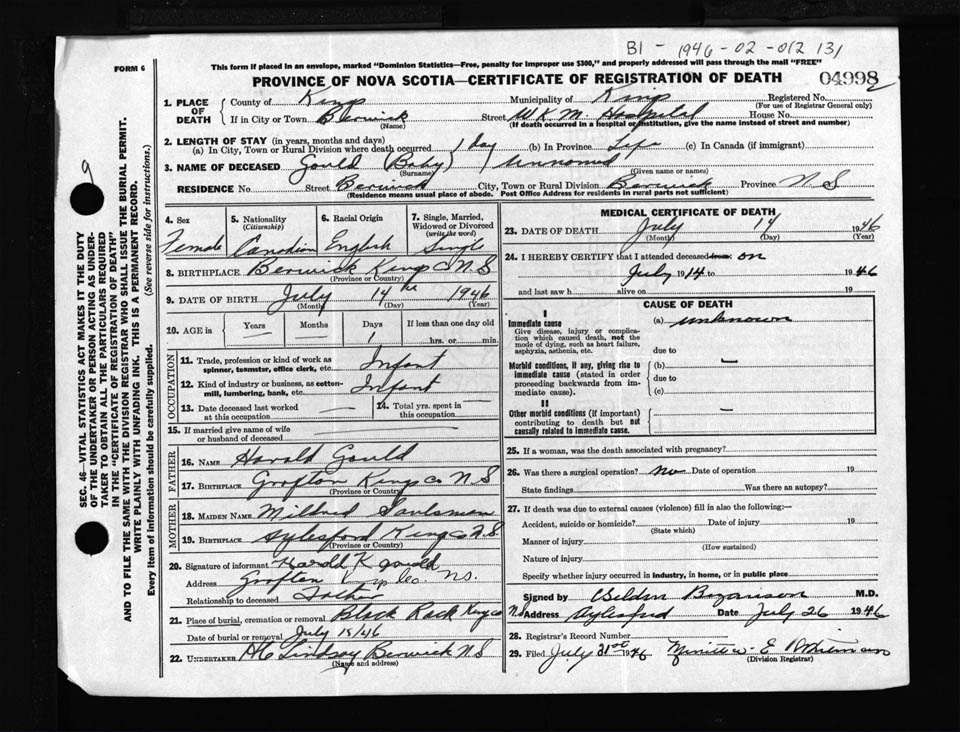 B1 - 1946-02-012131
FORM 6
This form if placed in an envelope, marked "Dominion Statistics—Free, penalty for improper use $300," and properly addressed will pass through the mail "FREE"
PROVINCE OF NOVA SCOTIA—CERTIFICATE OF REGISTRATION OF DEATH
04998
1. PLACE OF DEATH
County of Kings Municipality of Kings Registered No.
(For use of Registrar General only)
If in City or Town Berwick Street W K M Hospital House No.
(Name) (If death occurred in a hospital or institution, give the name instead of street and number)
2. LENGTH OF STAY (in years, months and days)
(a) In City, Town or Rural Division where death occurred 1 day (b) In Province Life (c) In Canada (if immigrant)
3. NAME OF DECEASED Gould (Baby) Unnamed
(Surname) (Given name or names)
RESIDENCE No Street Berwick City, Town or Rural Division Berwick Province N.S
(Residence means usual place of abode. Post Office Address for residents in rural parts not sufficient)
4. Sex
Female
5. Nationality
(Citizenship)
Canadian
6. Racial Origin
English
7. Single, Married, Widowed or Divorced
(write the word)
Single
8. BIRTHPLACE Berwick Kings Co N.S
(Province or Country)
9. DATE OF BIRTH July 14th 1946
(Month) (Day) (Year)
10. AGE in
Years Months Days If less than one day old
— — 1 hrs. or min.
OCCUPATION
11. Trade, profession or kind of work as spinner, teamster, office clerk, etc. Infant
12. Kind of industry or business, as cotton-mill, lumbering, bank, etc. Infant
13. Date deceased last worked at this occupation —
14. Total yrs. spent in this occupation —
15. If married give name of wife or husband of deceased
FATHER
16. NAME Harold Gould
17. BIRTHPLACE Grafton Kings Co N S
(Province or Country)
MOTHER
18. MAIDEN NAME Mildred
19. BIRTHPLACE Aylesford Kings Co N.S.
(Province or Country)
20. Signature of informant Harold K Gould
Address Grafton Kings Co. N.S.
Relationship to deceased Father
21. Place of burial, cremation or removal Black Rock Kings Co N.S
Date of burial or removal July 15/46
22. UNDERTAKER Lindsay Berwick N S
(Name and address)
MEDICAL CERTIFICATE OF DEATH
23. DATE OF DEATH July 14 1946
(Month) (Day) (Year)
24. I HEREBY CERTIFY that I attended deceased from on
July 1914 to 1946
and last saw h alive on 19
CAUSE OF DEATH
I
Immediate cause
(a) unknown
Give disease, injury or complication which caused death, not the mode of dying, such as heart failure, asphyxia, asthenia, etc.
due to
Morbid conditions, if any, giving rise to immediate cause (stated in order proceeding backwards from immediate cause).
(b) —
due to
(c)
II
Other morbid conditions (if important) contributing to death but not causally related to immediate cause.
—
25. If a woman, was the death associated with pregnancy?
26. Was there a surgical operation? no Date of operation 19
State findings Was there an autopsy?
27. If death was due to external causes (violence) fill in also the following:—
Accident, suicide or homicide? Date of injury 19
(State which)
Manner of injury
(How sustained)
Nature of injury
Specify whether injury occurred in industry, in home, or in public place
Signed by M.D.
Address Aylesford Date July 26 1946
28. Registrar's Record Number
29. Filed July 31st 1946
(Division Registrar)
SEC. 46—VITAL STATISTICS ACT MAKES IT THE DUTY OF THE UNDERTAKER OR PERSON ACTING AS UNDERTAKER TO OBTAIN ALL THE PARTICULARS REQUIRED IN THE "CERTIFICATE OF REGISTRATION OF DEATH"
AND TO FILE THE SAME WITH THE DIVISION REGISTRAR WHO SHALL ISSUE THE BURIAL PERMIT.
WRITE PLAINLY WITH UNFADING INK. THIS IS A PERMANENT RECORD.
Every item of information should be carefully supplied. (See reverse side for instructions.)
9